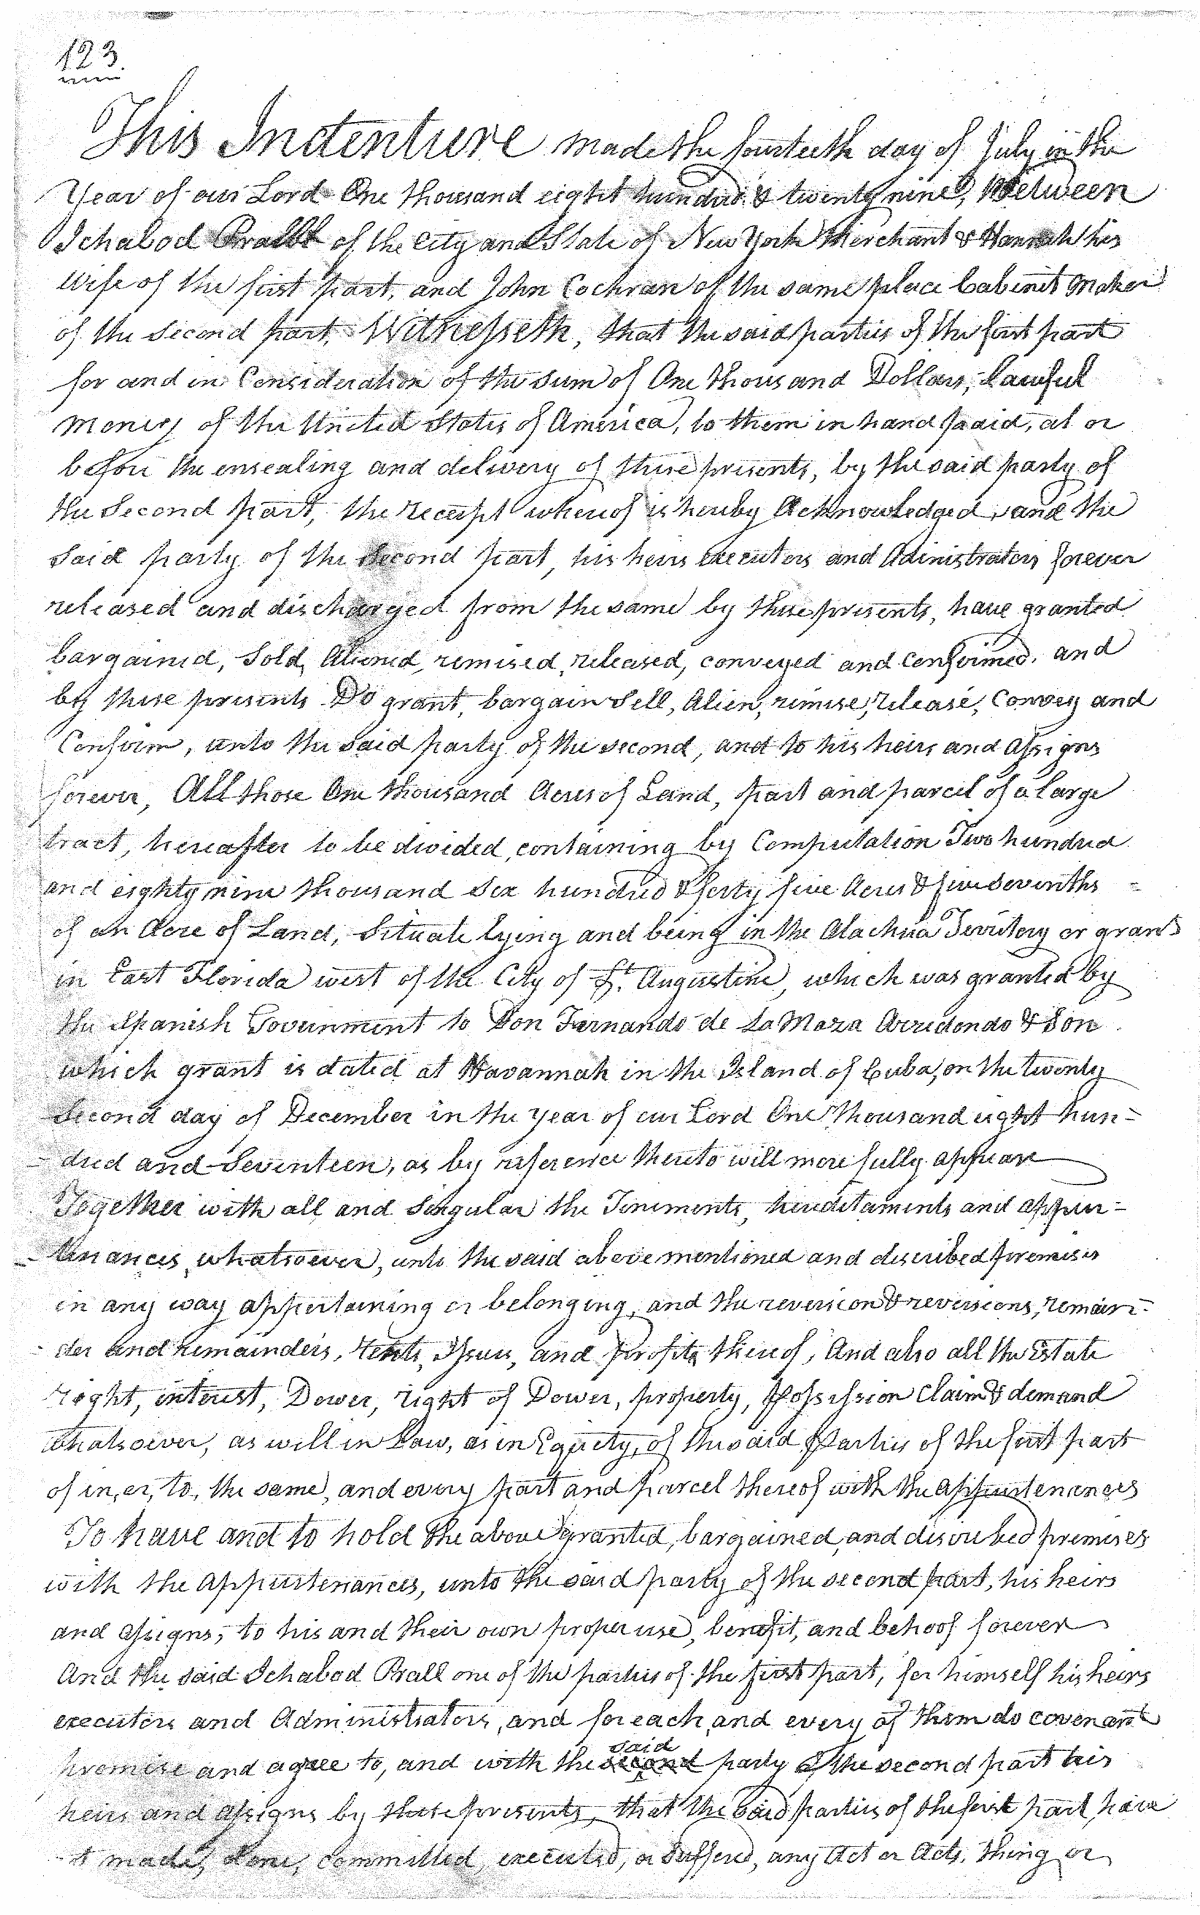 123.
This Indenture made the fourteeth day of July in the
Year of our Lord One thousand eight hundred & twenty nine, Between
Ichabod Prall of the City and State of New York Merchant & Hannah his
Wife of the first part, and John Cochran of the same place Cabinet Maker
of the Second part, Witnesseth, that the said parties of the first part
for and in Consideration of the sum of One thousand Dollars, lawful
Money of the United States of America, to them in hand paid, at or
before the ensealing and delivery of these presents, by the said party of
the Second part, the receipt whereof is hereby Acknowledged, and the
Said party of the Second part, his heirs executors and Administrators forever
released and discharged from the same by these presents, have granted
bargained, Sold, Aliened, remised, released, conveyed and confirmed, and
by these presents Do grant, bargain Sell, Alien, remise, release, Convey and
Confirm, unto the said party of the second, and to his heirs and assigns
forever, All those One thousand Acres of Land, part and parcel of a large
tract, hereafter to be divided, containing by Computation Two hundred
and eighty nine thousand Six hundred & forty five Acres & five sevenths =
of an Acre of Land, Situate lying and being in the Alachua Territory or grant
in East Florida west of the City of St. Augustine, which was granted by
the Spanish Government to Don Fernando de La Maza Arredondo & Son
which grant is dated at Havannah in the Island of Cuba, on the twenty
Second day of December in the year of our Lord One thousand eight hun=
dred and Seventeen, as by reference thereto will more fully appear
Together with all and Singular the Tenements, hereditaments and appur=
tenances, whatsoever, unto the said above mentioned and described premises
in any way appertaining or belonging, and the reversion & reversions, remain=
der and remainders, rents, Issues, and profits thereof, And also all the Estate
right, interest, Dower, right of Dower, property, possession claim & demand
whatsoever, as well in Law, as in Equity, of the said Parties of the first part
of in, or, to, the same, and every part and parcel thereof with the appurtenances
To have and to hold the above granted, bargained, and discribed premises
with the appurtenances, unto the said party of the second part, his heirs
and assigns, to his and their own proper use, benefit, and behoof forever
And the said Ichabod Prall one of the parties of the first part, for himself his heirs
executors and Administrators, and for each and every of them do covenant
promise and agree to, and with the said party of the second part his
heirs and assigns by these presents, that the Said parties of the first part, have
made, done, committed, executed, or Suffered, any Act or Acts, thing or